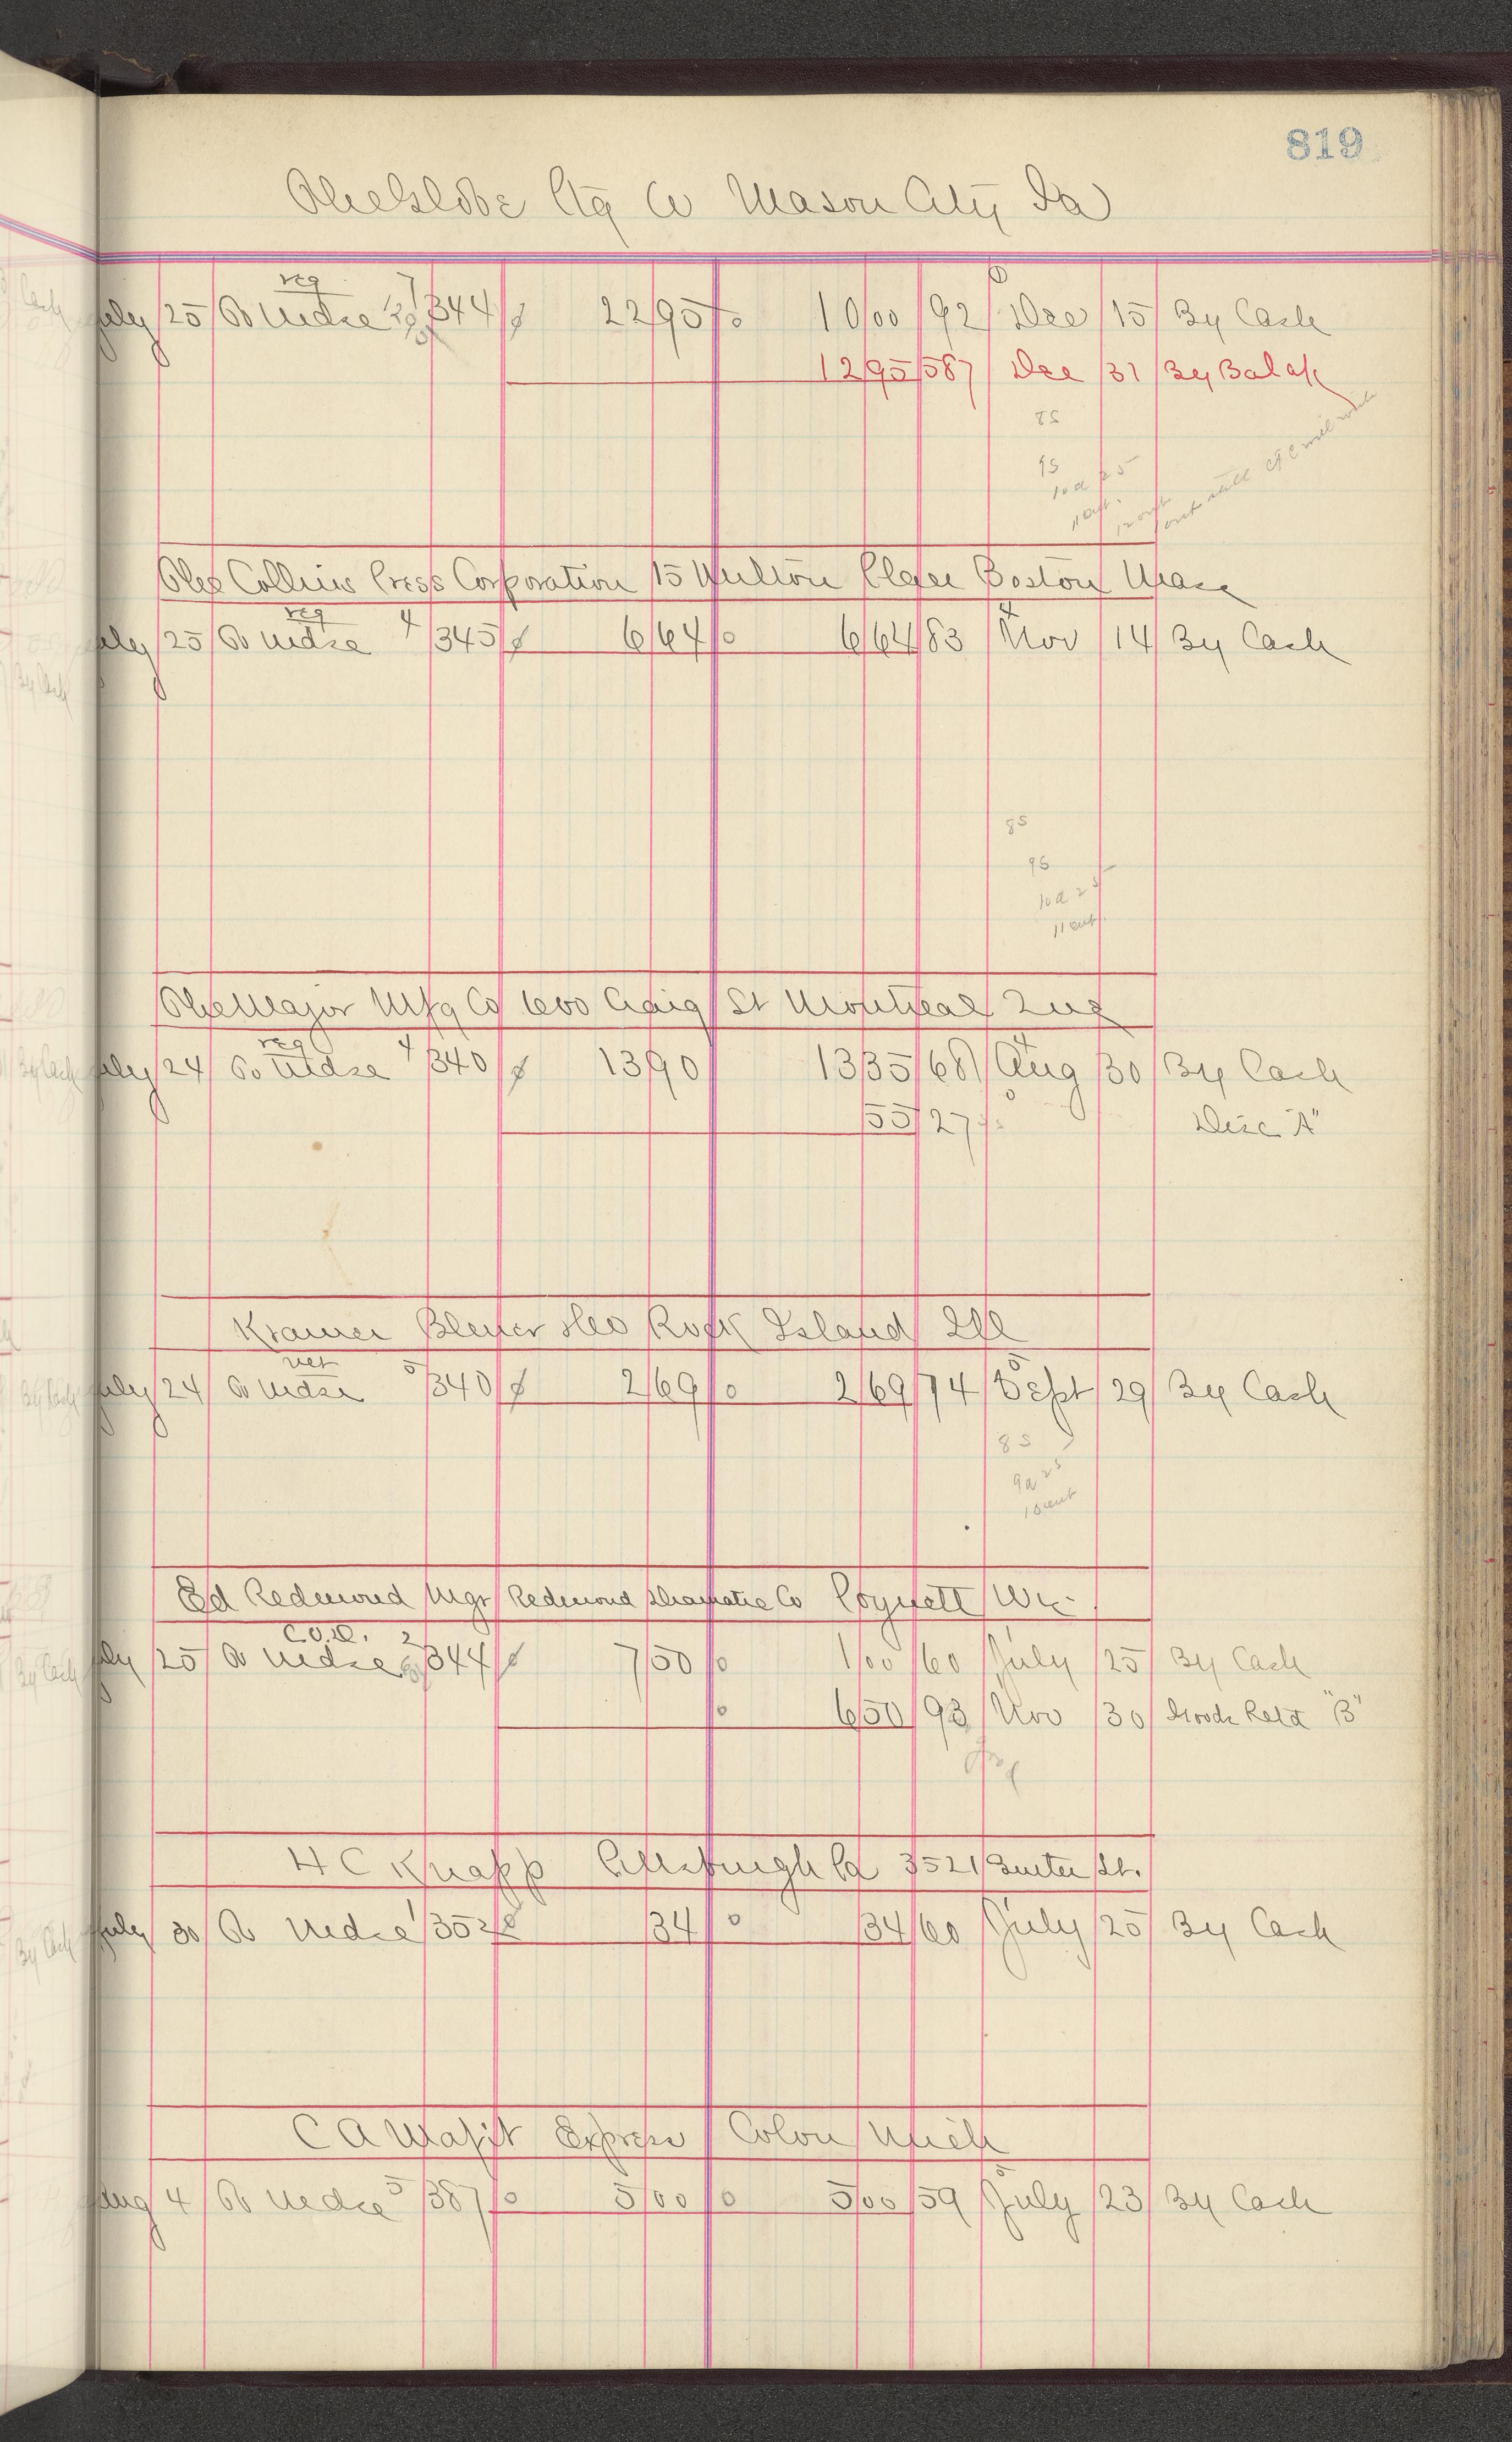 819
The Globe Ctg Co Mason City Ia
reg 7
July 25 To Mdse 344 22 95 10 00 92 Dec 15 By Cash
12 95 587 Dec 31 By Bal
8S
9S
10 a 25
11 out.
The Collins Press Corporation 15 Milton Place Boston Mass
reg 4 4
July 25 To Mdse 345 6 64 0 6 64 83 Nov 14 By Cash
8S
9S
10 a 25
11 out.
The Major Mfg Co 600 Craig St Montreal Que
reg 4 4
July 24 To Mdse 340 13 90 13 35 68 Aug 30 By Cash
55 27 Disc "A"
Kramer Bleuer Rock Island Ill
net 5 5
July 24 To Mdse 340 2 69 0 2 69 74 Sept 29 By Cash
8S
9a 25
10 out
Ed Redmond Mgr Redmond Dramatic Co Poynett Wis.
C.O.D. 2
July 25 To Mdse 344 7 50 0 1 00 60 July 25 By Cash
0 6 50 93 Nov 30 Goods Retd "B"
H C Knapp Pittsburgh Pa 3521 Butler St.
July 30 To Mdse 1 352 34 0 34 60 July 25 By Cash
C A Express Colon Mich
Aug 4 To Mdse 5 387 0 5 00 0 5 00 59 July 23 By Cash